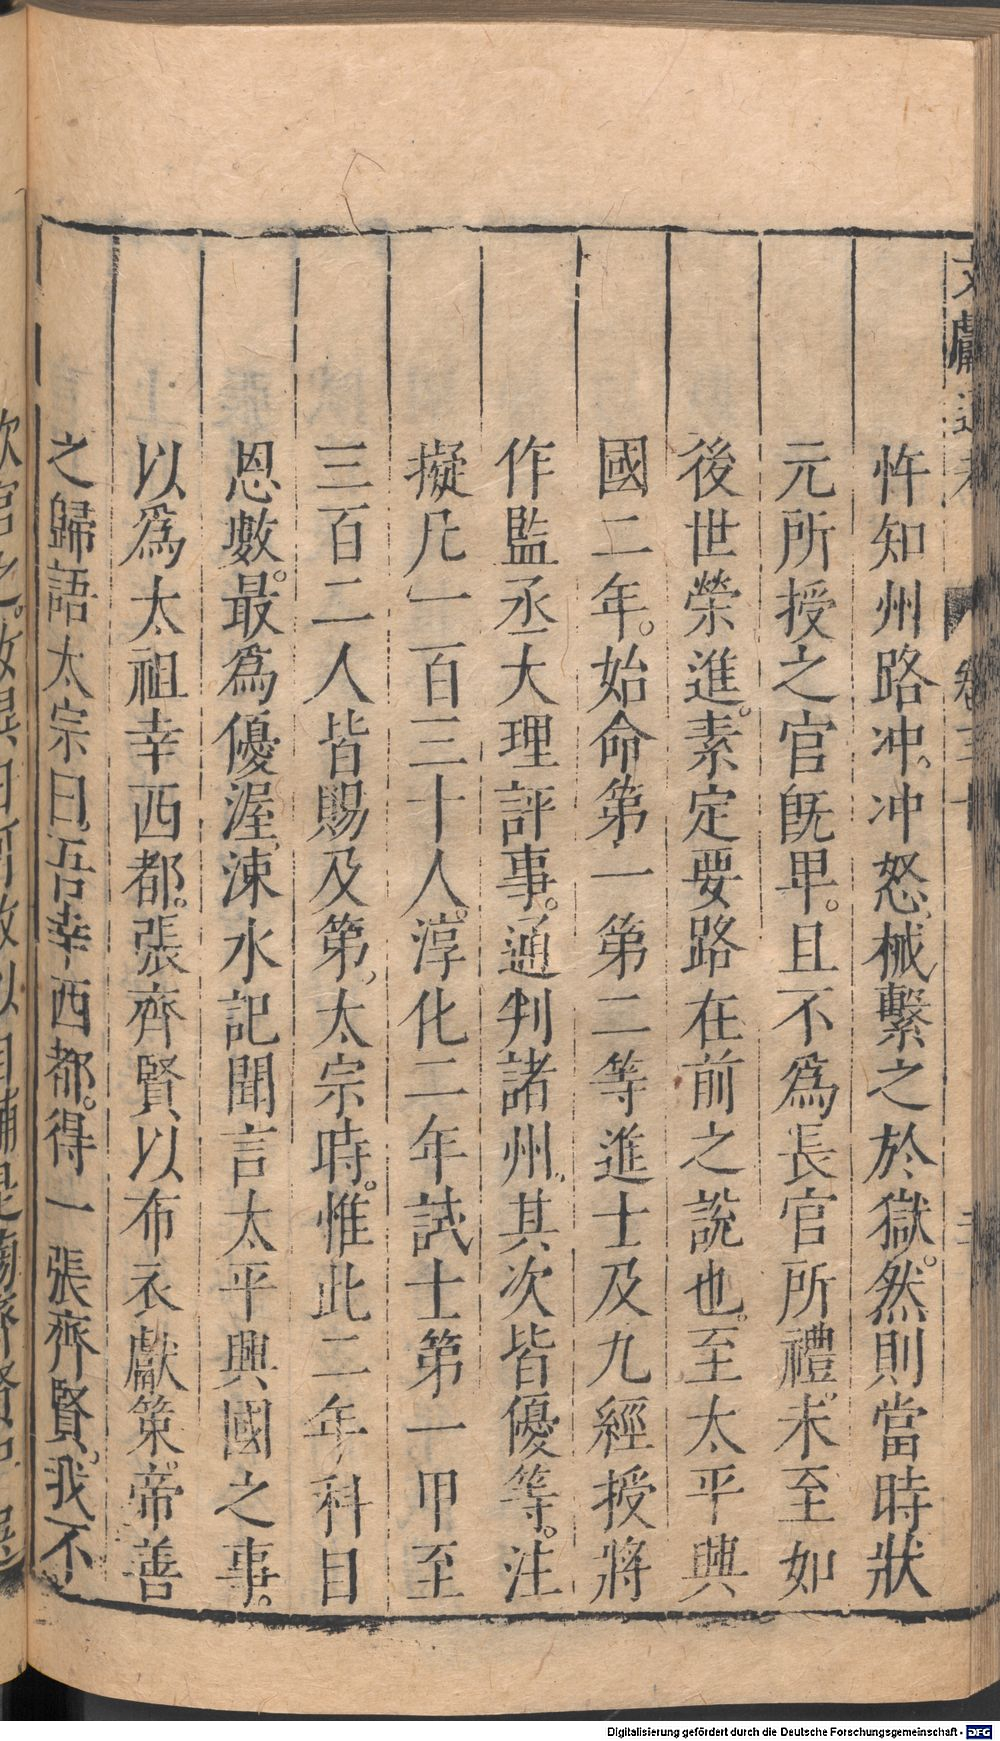 文獻通考 卷三十
忤知州路冲。冲怒,械繫之於獄。然則當時狀
元所授之官旣卑。且不爲長官所禮。未至如
後世榮進。素定要路在前之說也。至太平興
國二年。始命第一第二等進士及九經授將
作監丞大理評事。通判諸州。其次皆優等。注
擬凡一百三十人。淳化二年試士第一甲至
三百二人皆賜及第。太宗時。惟此二年科目
恩數。最爲優渥。涑水記聞言太平興國之事。
以爲太祖幸西都。張齊賢以布衣獻策。帝善
之歸語太宗曰。吾幸西都。得一張齊賢。我不
Digitalisierung gefördert durch die Deutsche Forschungsgemeinschaft - DFG